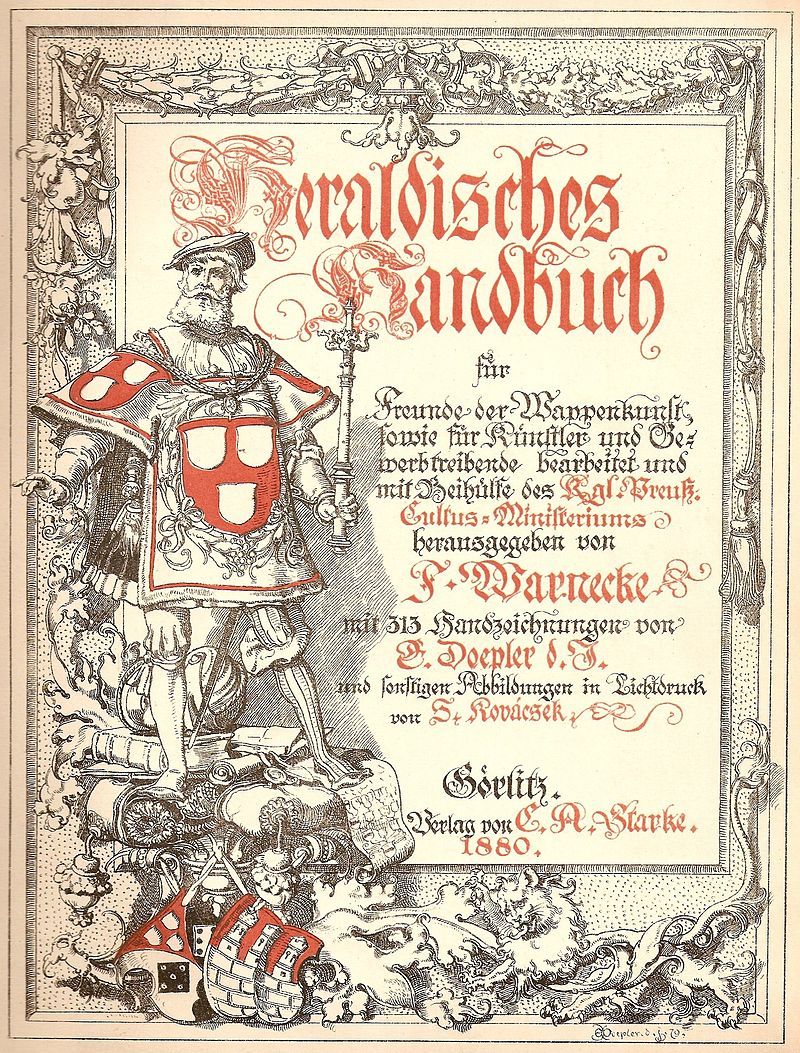 Heraldisches
Handbuch
für
Freunde der Wappenkunst,
sowie für Künstler und Ge-
werbtreibende bearbeitet und
mit Beihülfe des Kgl. Preuß.
Cultus-Ministeriums
herausgegeben von
F. Warnecke
mit 313 Handzeichnungen von
E. Doepler d. J.
und sonstigen Abbildungen in Lichtdruck
von S. Kovácsek.
Görlitz.
Verlag von C. A. Starke.
1880.
E Doepler. d. J.